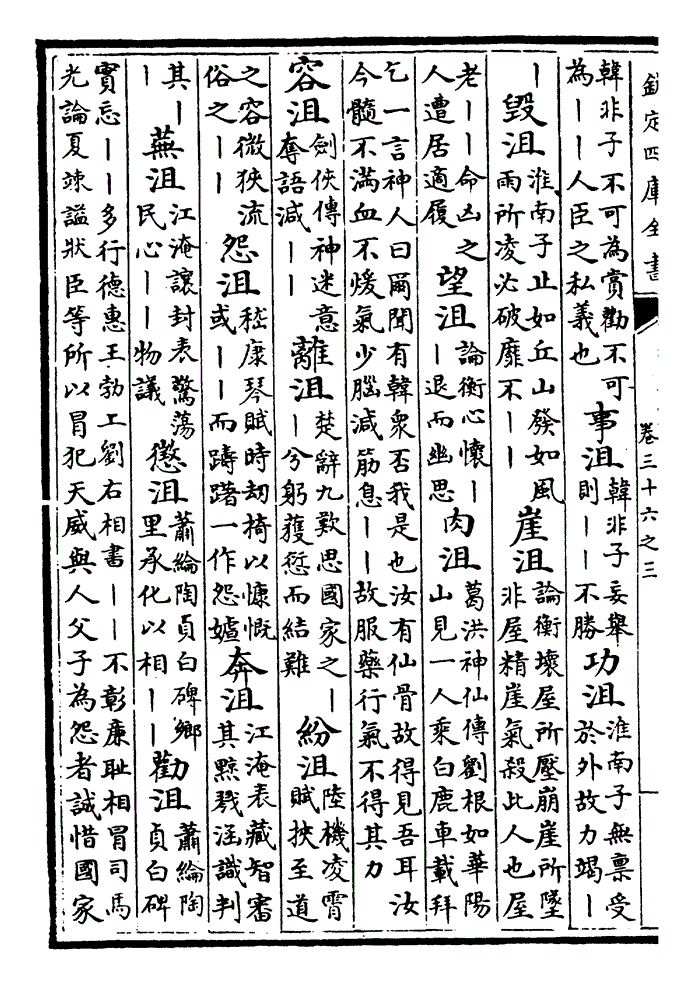 欽定四庫全書
卷三十六之三
韓非子不可為賞勸不可
為丨丨人臣之私義也
事沮
韓非子妄舉
則丨丨不勝
功沮
淮南子無稟受
於外故力竭丨
丨
毀沮
淮南子止如丘山發如風
雨所凌必破靡不丨丨
崖沮
論衡壞屋所壓崩崖所墜
非屋精崖氣殺此人也屋
老丨丨命凶之
人遭居適履
望沮
論衡心懷丨
丨退而幽思
肉沮
葛洪神仙傳劉根如華陽
山見一人乘白鹿車載拜
乞一言神人曰爾聞有韓衆否我是也汝有仙骨故得見吾耳汝
今髓不滿血不煖氣少腦減筋息丨丨故服藥行氣不得其力
容沮
劍俠傳神迷意
奪語減丨丨
離沮
楚辭九歎思國家之丨
丨兮躬獲愆而結難
紛沮
陸機凌霄
賦挾至道
之容微狹流
俗之丨丨
怨沮
嵇康琴賦時劫掎以慷慨
或丨丨而躊躇一作怨嫭
奔沮
江淹表藏智審
其黥戮涵識判
其丨
丨
蕪沮
江淹讓封表驚蕩
民心丨丨物議
懲沮
蕭綸陶貞白碑鄉
里承化以相丨丨
勸沮
蕭綸陶
貞白碑
實忘丨丨多行德惠王勃工劉右相書丨丨不彰廉恥相冒司馬
光論夏竦諡狀臣等所以冒犯天威與人父子為怨者誠惜國家